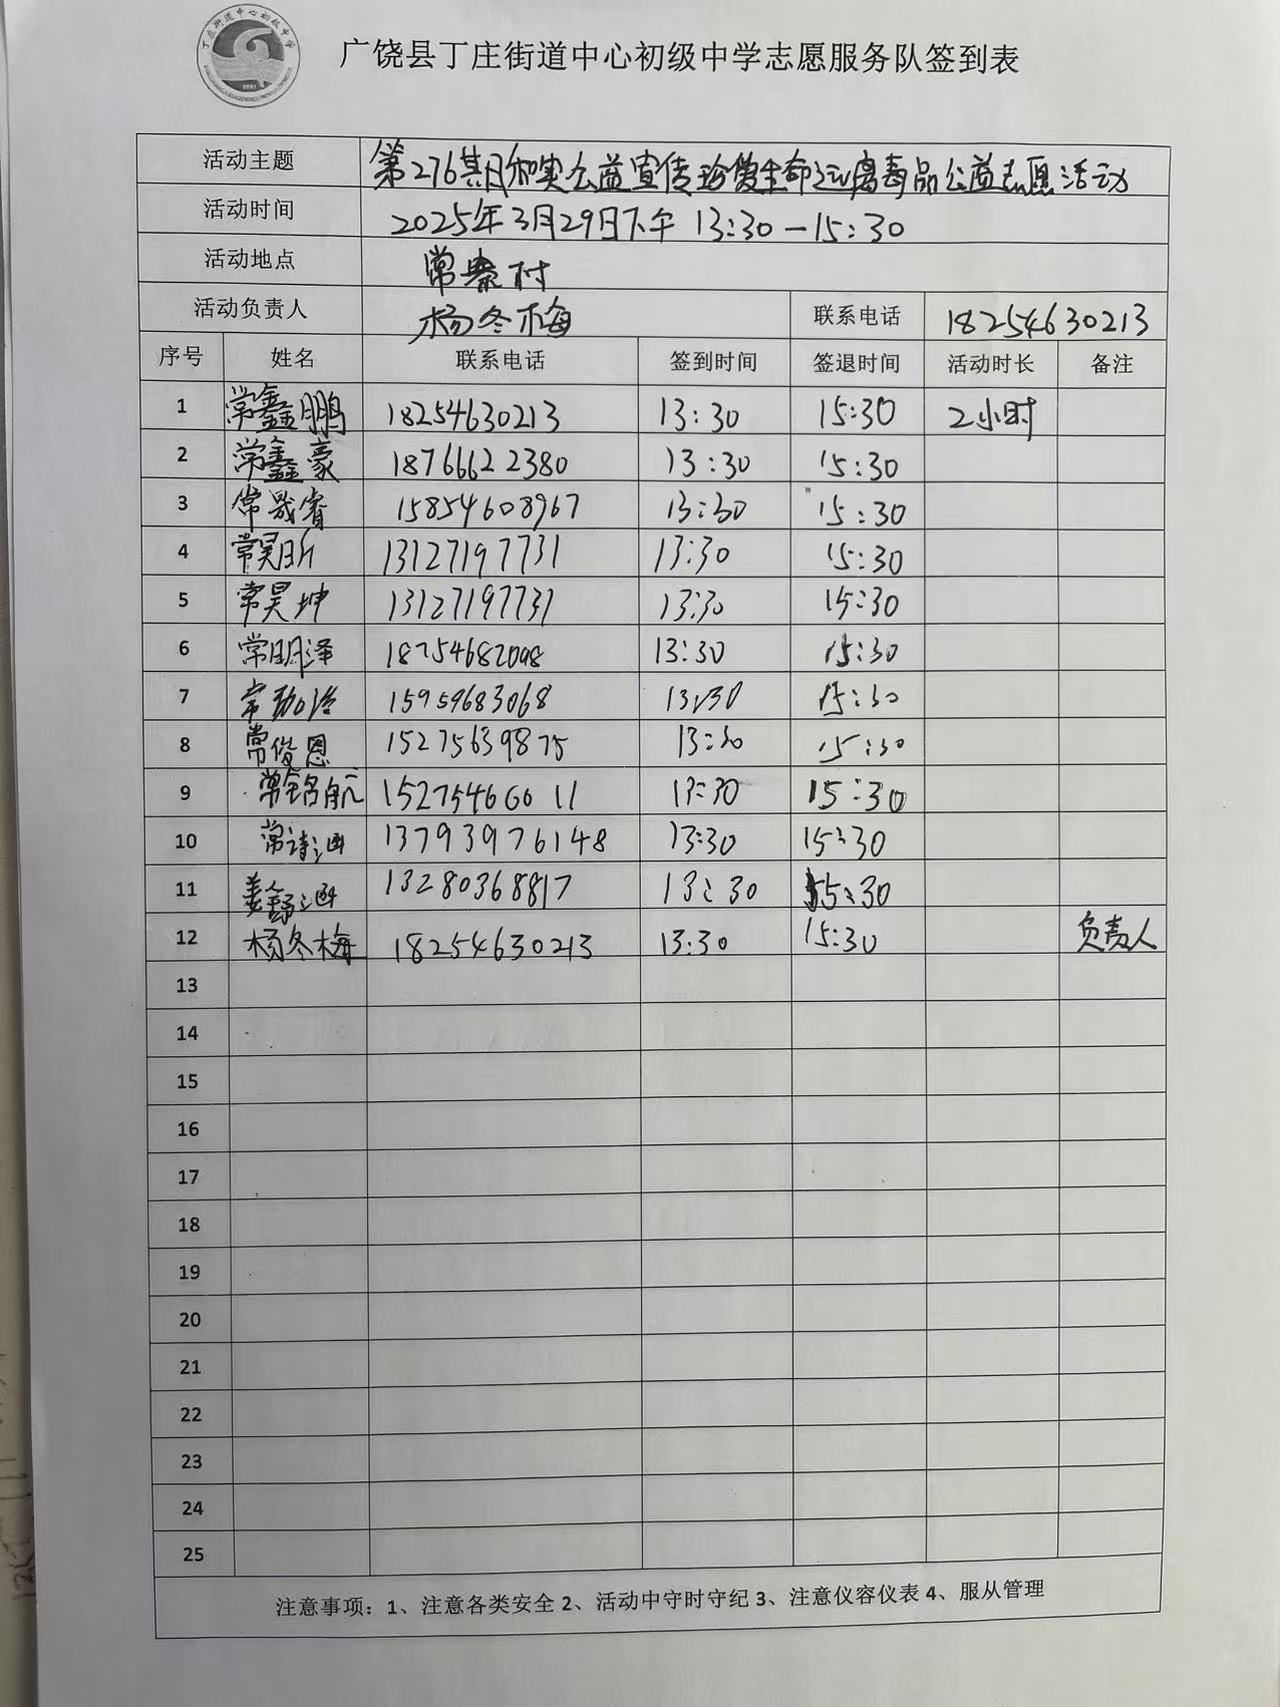 广饶县丁庄街道中心初级中学志愿服务队签到表
活动主题 第276期日和实公益宣传珍爱生命远离毒品公益志愿活动
活动时间 2025年3月29日下午 13:30—15:30
活动地点 常秦村
活动负责人 杨冬梅 联系电话 18254630213
序号 姓名 联系电话 签到时间 签退时间 活动时长 备注
1 常鑫鹏 18254630213 13:30 15:30 2小时
2 常鑫豪 18766622380 13:30 15:30
3 常晟睿 15854608967 13:30 15:30
4 常昊昕 13127197731 13:30 15:30
5 常昊坤 13127197731 13:30 15:30
6 常明泽 18754682098 13:30 15:30
7 常 15959683068 13:30 15:30
8 常俊恩 15275639875 13:30 15:30
9 常铭航 15275466011 13:30 15:30
10 常诗涵 13793976148 13:30 15:30
11 姜舒涵 13280368817 13:30 15:30
12 杨冬梅 18254630213 13:30 15:30 负责人
13
14
15
16
17
18
19
20
21
22
23
24
25
注意事项：1、注意各类安全 2、活动中守时守纪 3、注意仪容仪表 4、服从管理